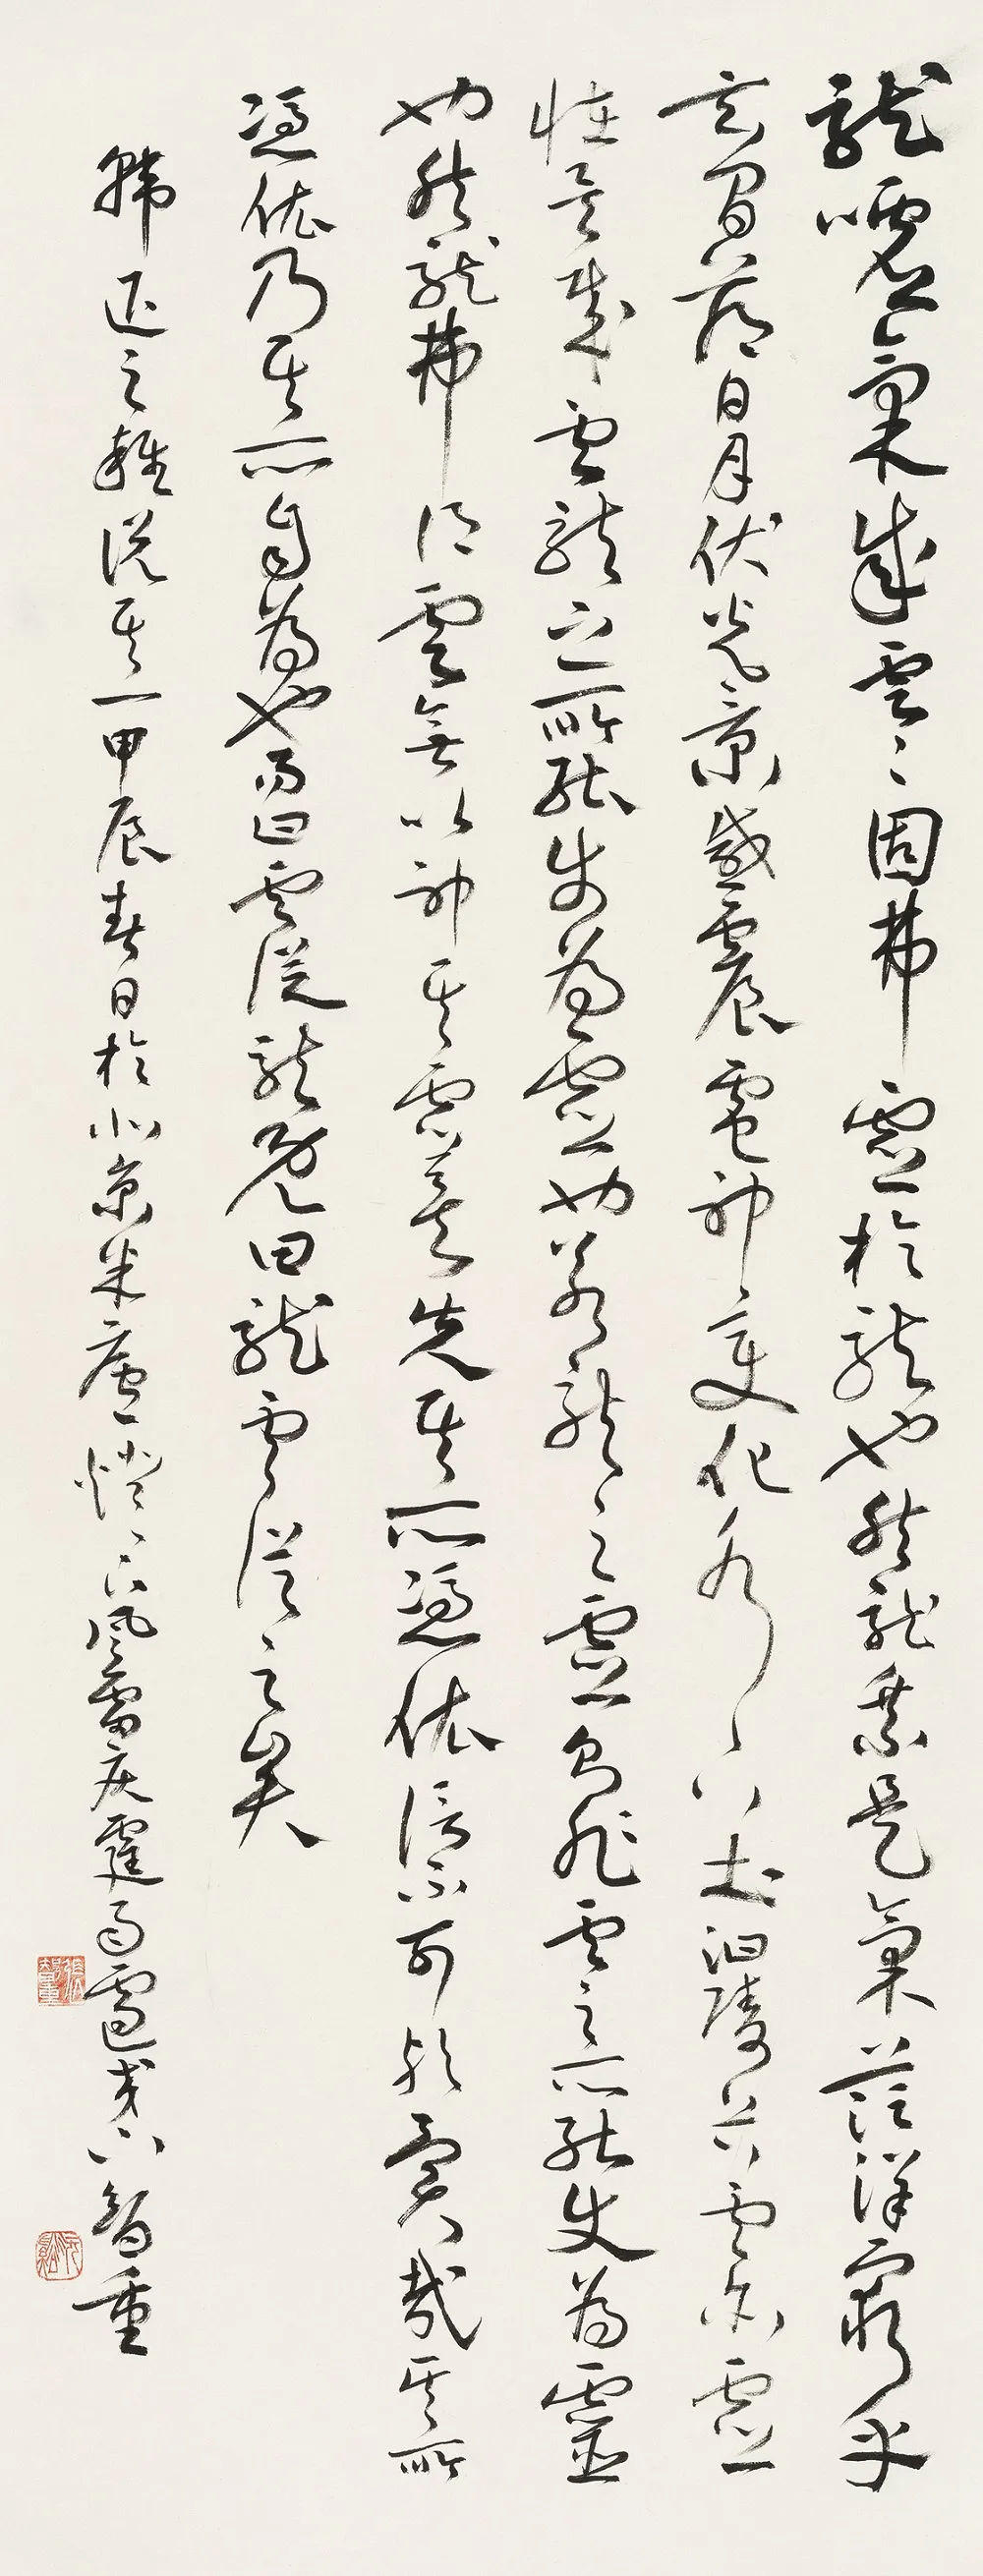 龍噓氣成雲雲固弗靈於龍也然龍乘是氣茫洋窮乎
玄間薄日月伏光景感震電神變化水下土汩陵谷雲亦靈
怪矣哉雲龍之所能使為靈也若龍之靈則非雲之所能使為靈
也然龍弗得雲無以神其靈矣失其所憑依信不可歟異哉其所
憑依乃其所自為也易曰雲從龍既曰龍雲從之矣
韓退之雜說其一甲辰春日於北京米廬燈下風雷
智重